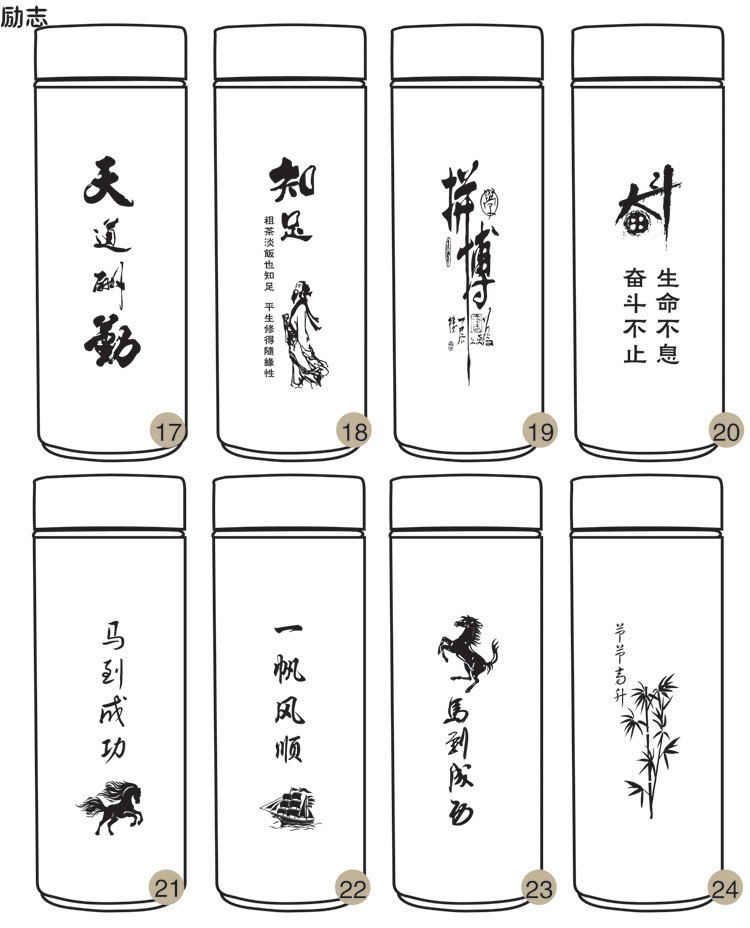 励志
天道酬勤
17
知足
粗茶淡飯也知足 平生修得隨緣性
18
拼搏
19
奋斗
生命不息
奋斗不止
20
马到成功
21
一帆风顺
22
馬到成功
23
节节高升
24